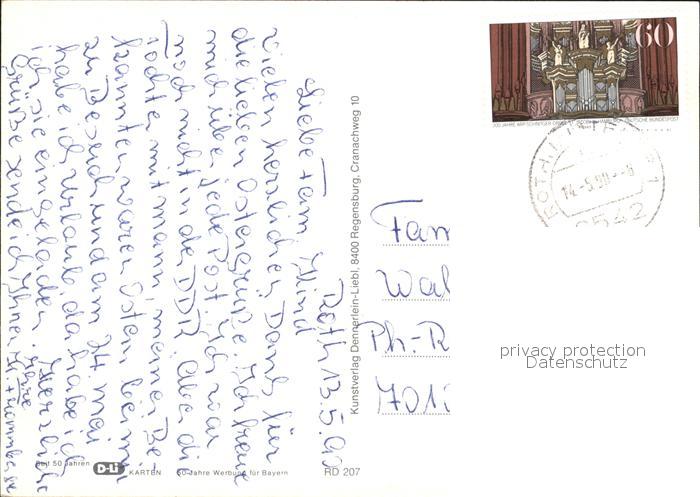 Roth 13.5.90
Liebe Fam. Wind
vielen herzlichen Dank für
die lieben Ostergrüße. Ich freue
mich über jede Post. Ich war
noch nicht in der DDR. Aber die
Tochter mit Mann, meiner Be-
kannten waren Ostern bei mir
zu Besuch und am 24 Mai
habe ich Urlaub, da habe ich
sie eingeladen. Herzliche
Grüße sendet Ihnen Ihre
Kunstverlag Dennerlein-Liebl, 8400 Regensburg, Cranachweg 10
60
300 JAHRE ARP-SCHNITGER-ORGEL ST. JACOBI HAMBURG DEUTSCHE BUNDESPOST
ROTH
14.-5.90--8
8542
Fam
Wal
Ph.-R
701
privacy protection
Datenschutz
Seit 50 Jahren D-Li KARTEN 50 Jahre Werbung für Bayern RD 207